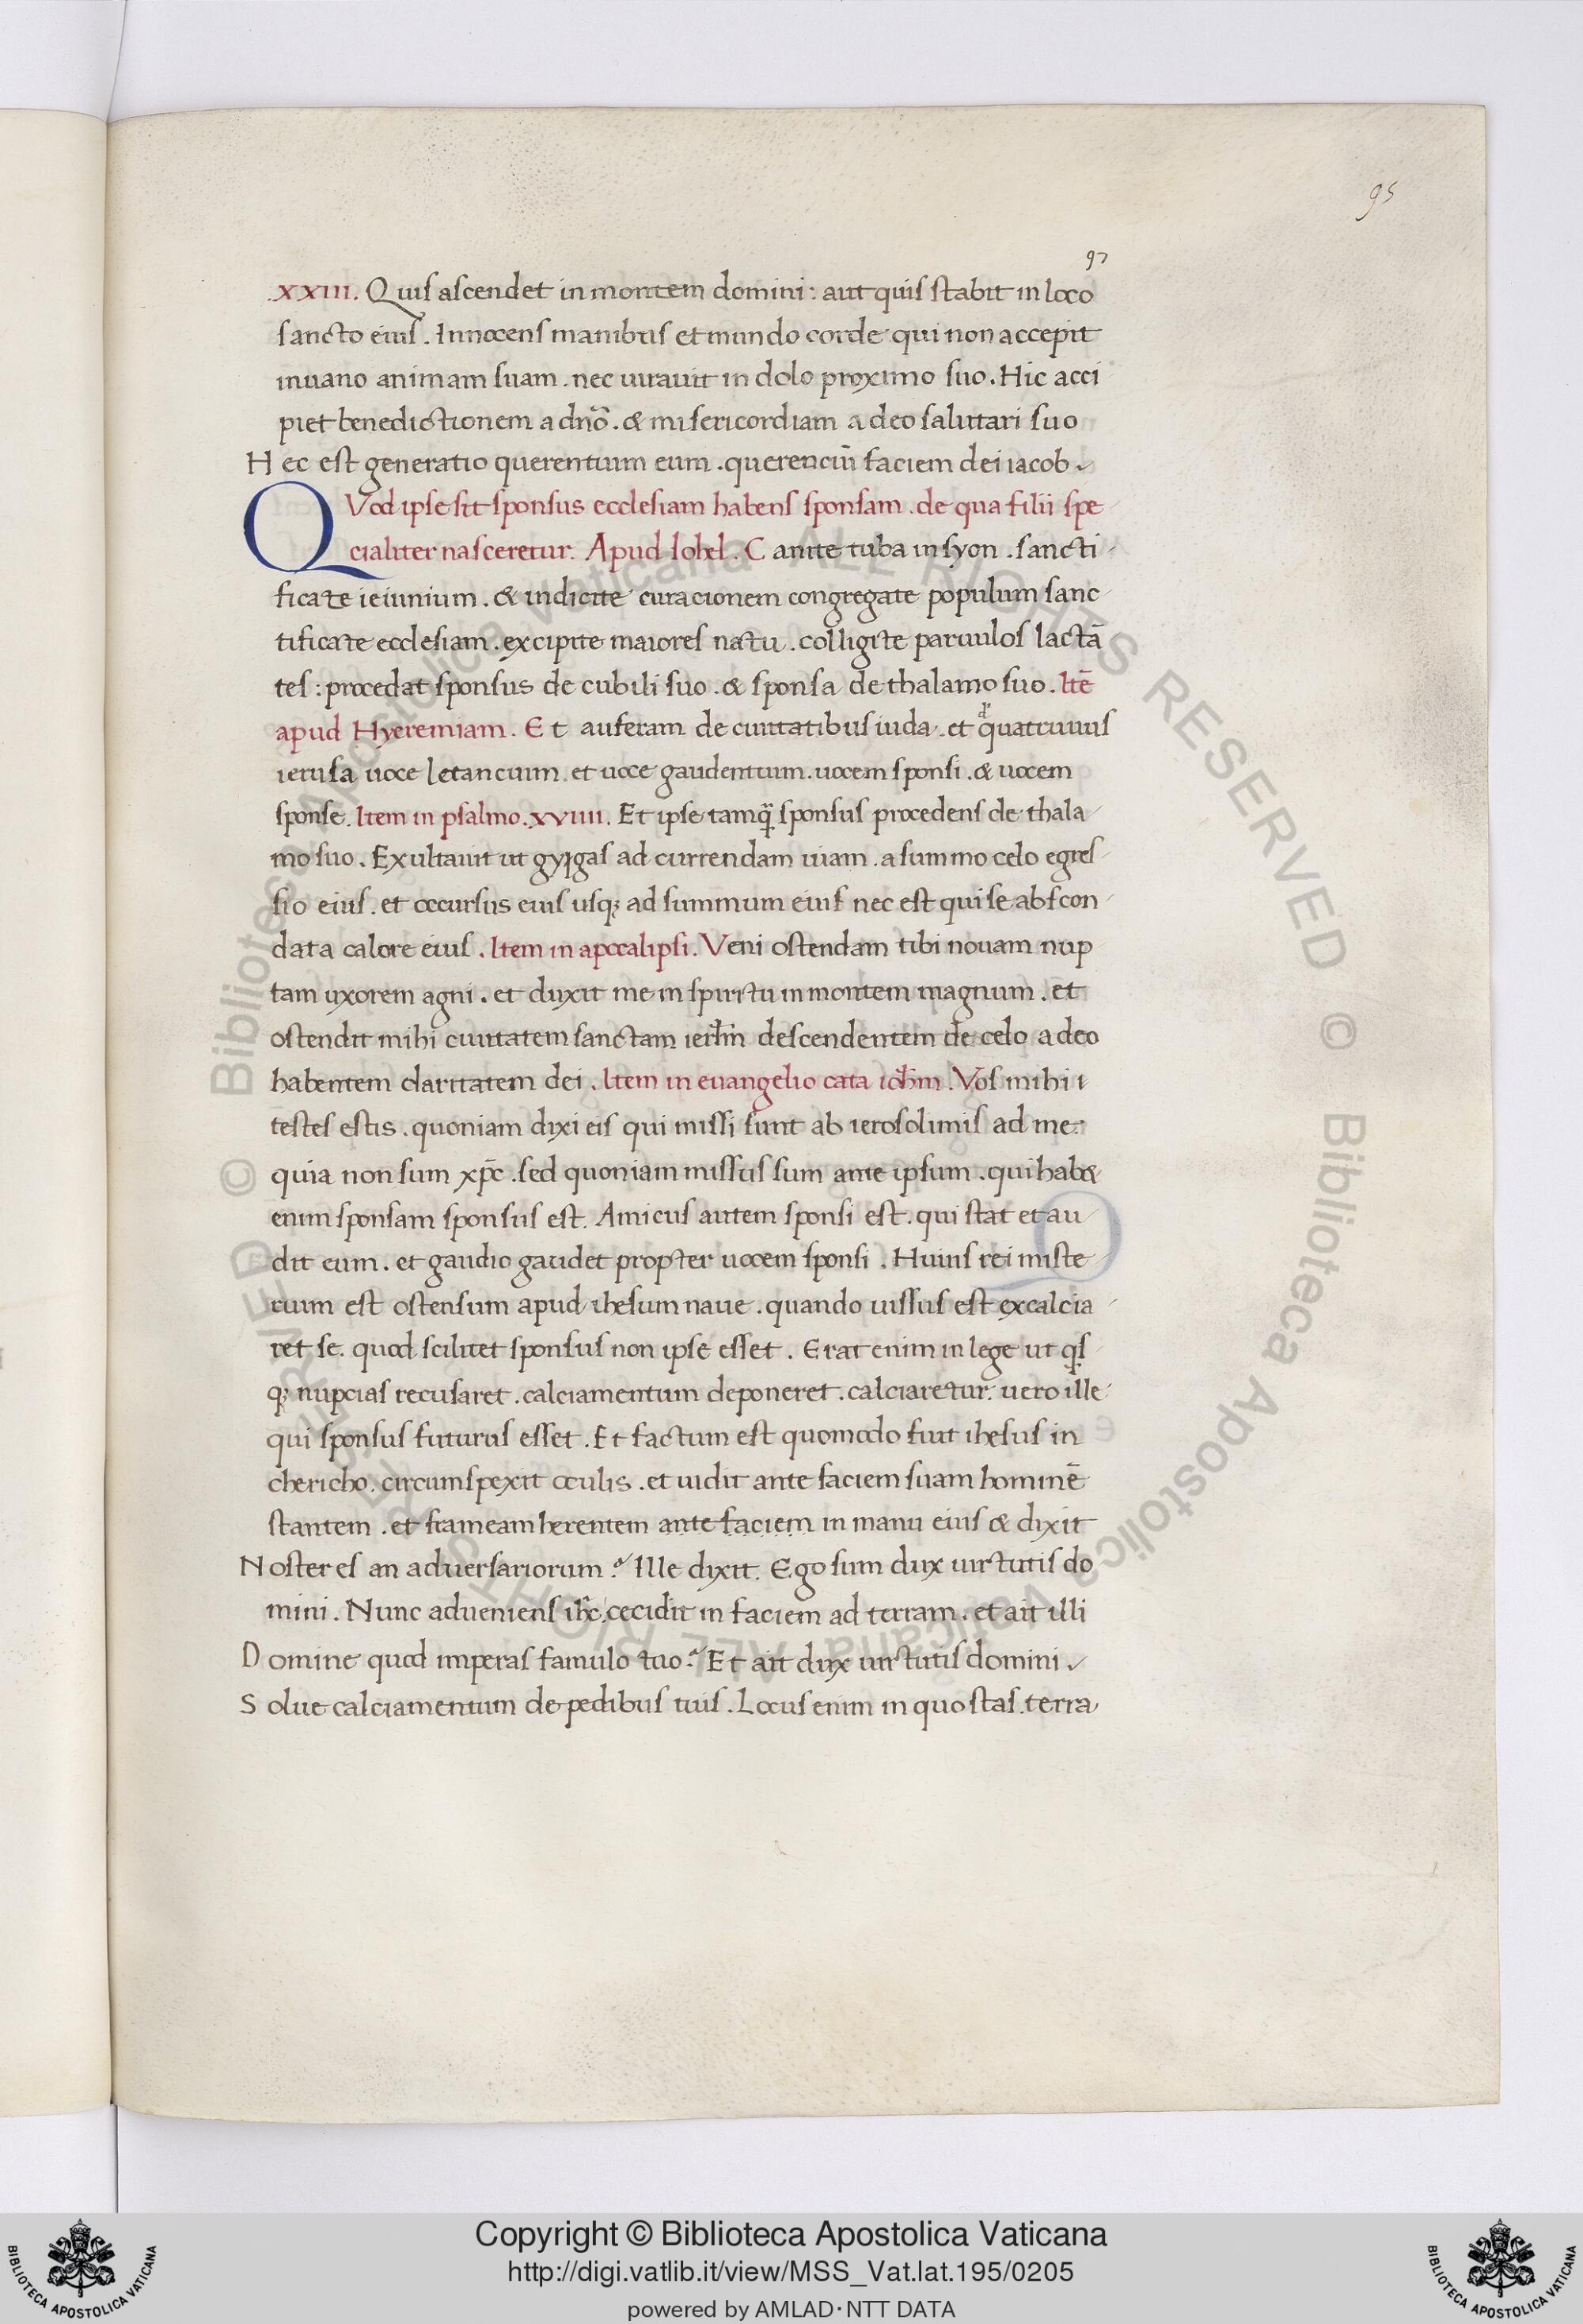 95
97
.XXIII. Quis ascendet in montem domini: aut quis stabit in loco
sancto eius. Innocens manibus et mundo corde qui non accepit
inuano animam suam. nec iurauit in dolo proximo suo. Hic acci
piet benedictionem a dn̄o. & misericordiam a deo salutari suo
Hec est generatio querentium eum. querenciū faciem dei iacob.
QVod ipse sit sponsus ecclesiam habens sponsam. de qua filii spe
cialiter nasceretur. Apud Iohel. Canite tuba in syon. sancti
ficate ieiunium. & indicite curacionem congregate populum sanc
tificate ecclesiam. excipite maiores natu. colligite paruulos lactā
tes: procedat sponsus de cubili suo. & sponsa de thalamo suo. Itē
apud Hyeremiam. Et auferam de ciuitatibus iuda. et
ierusa uoce letancium. et uoce gaudentium. uocem sponsi. & uocem
sponse. Item in psalmo. xviiii. Et ipse tamq̄ sponsus procedens de thala
mo suo. Exultauit ut gygas ad currendam uiam. a summo celo egres
sio eius. et occursus eius usq; ad summum eius nec est qui se abscon
dat a calore eius. Item in apocalipsi. Veni ostendam tibi nouam nup
tam uxorem agni. et duxit me in spiritu in montem magnum. et
ostendit mihi ciuitatem sanctam ierl̄m descendentem de celo a deo
habentem claritatem dei. Item in euangelio cata ioh̄m. Vos mihi i
testes estis. quoniam dixi eis qui missi sunt ab ierosolimis ad me:
quia non sum xp̄c. sed quoniam missus sum ante ipsum. qui hab&
enim sponsam sponsus est. Amicus autem sponsi est. qui stat et au
dit eum. et gaudio gaudet propter uocem sponsi. Huius rei miste
rium est ostensum apud ihesum naue. quando uissus est excalcia
ret se. quod scilitet sponsus non ipse esset. Erat enim in lege ut q̄s
q; nupcias recusaret. calciamentum deponeret. calciaretur. uero ille
qui sponsus futurus esset. Et factum est quomodo fuit ihesus in
chericho. circumspexit oculis. et uidit ante faciem suam hominē
stantem. et frameam herentem ante faciem in manu eius & dixit
Noster es an aduersariorum? Ille dixit. Ego sum dux uirtutis do
mini. Nunc adueniens ih̄c cecidit in faciem ad terram. et ait illi
Domine quod imperas famulo tuo? Et ait dux uirtutis domini.
Solue calciamentum de pedibus tuis. Locus enim in quo stas. terra
© Biblioteca Apostolica Vaticana ALL RIGHTS RESERVED © Biblioteca Apostolica Vaticana ALL RIGHTS RESERVED
Copyright © Biblioteca Apostolica Vaticana
http://digi.vatlib.it/view/MSS_Vat.lat.195/0205
powered by AMLAD·NTT DATA
BIBLIOTECA APOSTOLICA VATICANA
BIBLIOTECA APOSTOLICA VATICANA